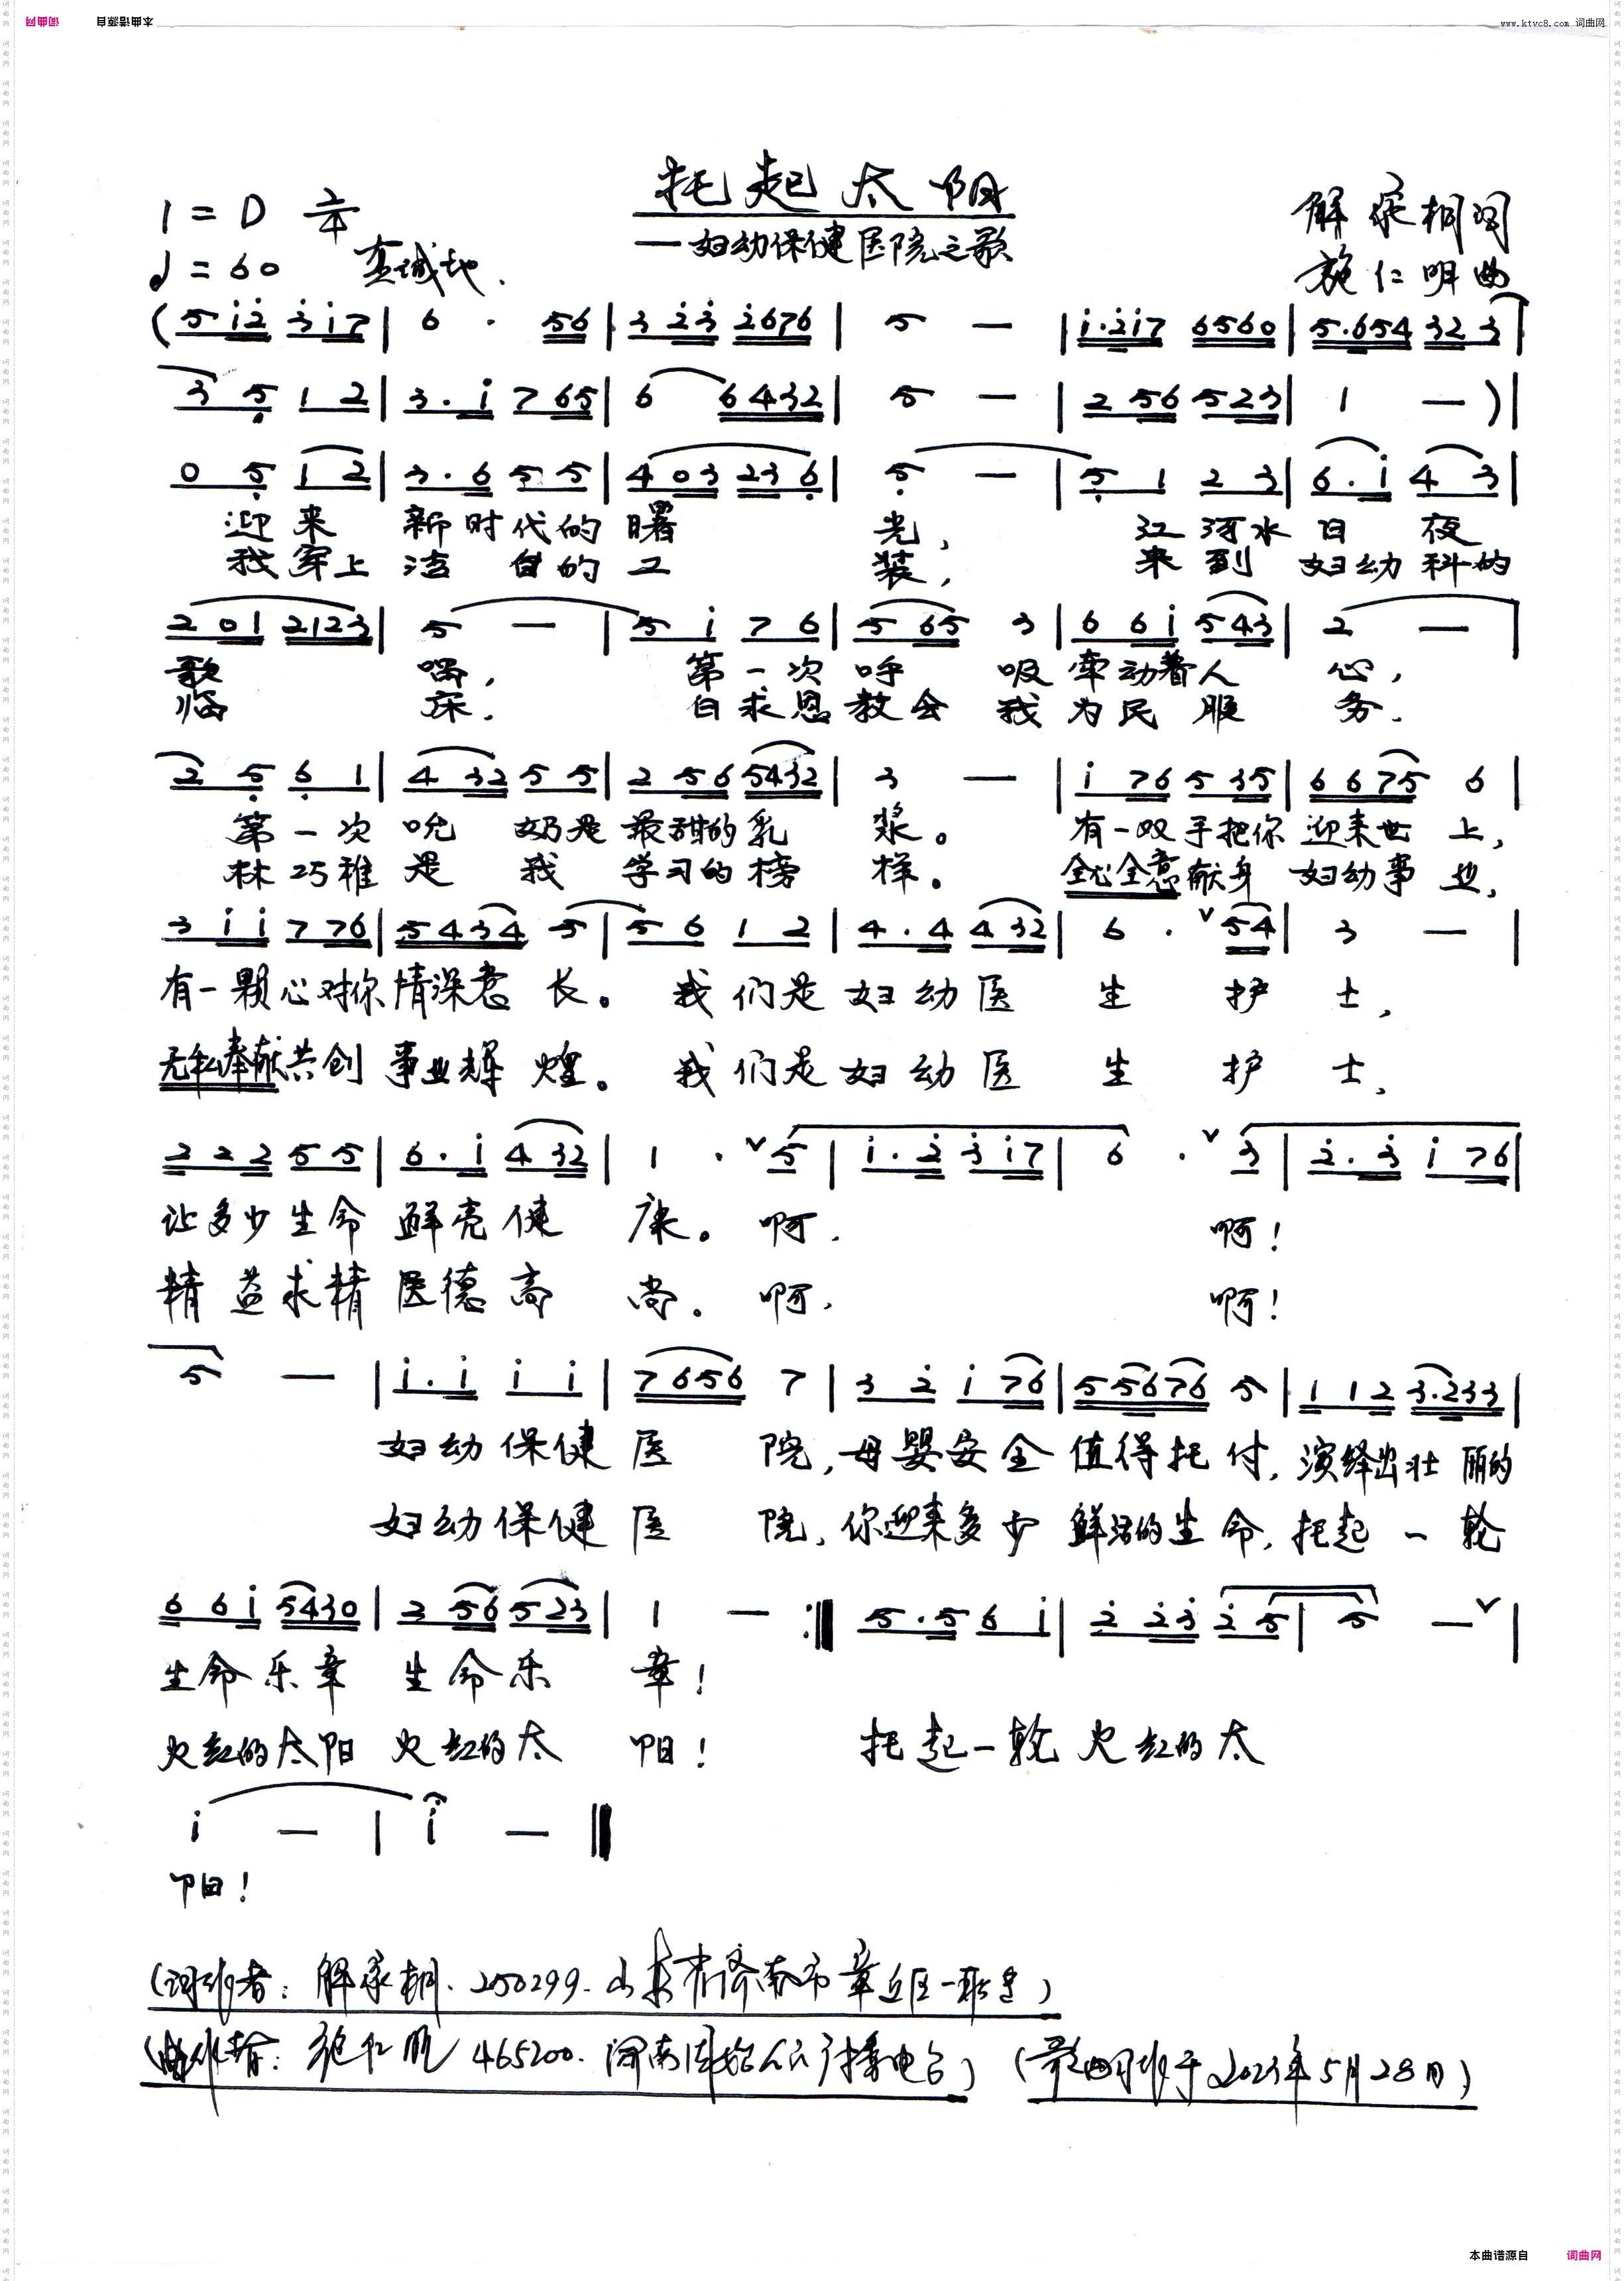 词曲网 本曲谱源自 www.ktvc8.com 词曲网
托起太阳
—妇幼保健医院之歌
1=D 2/4
♩=60 真诚地.
解承桐词
施仁明曲
(5 i̇2̇ 3̇i̇7 | 6 · 56 | 3̇ 2̇3̇ 2̇676 | 5 — | i̇·2̇i̇7 6560 | 5·654 32 3 |
3 5̣ 1 2 | 3·i̇ 7 65 | 6 6432 | 5 — | 2 56 523 | 1 — ) |
0 5̣ 1 2 | 3·6 5 5 | 4 03 23 6̣ | 5̣ — | 5̣ 1 2 3 | 6·i̇ 4 3 |
迎来 新时代的曙 光, 江河水日夜
我穿上洁白的工 装, 来到妇幼科的
2 01 2123 | 5 — | 5 i̇ 7 6 | 5 65 3 | 6 6i̇ 543 | 2 — |
歌 唱, 第一次呼 吸牵动着人 心,
临 床. 白求恩教会 我为民服 务.
2 5̣ 6̣ 1 | 4 32 5 5 | 2 56 5432 | 3 — | i̇ 76 5 35 | 6 6 75 6 |
第一次吮 奶是最甜的乳 浆。 有一双手把你迎来世上,
林巧稚是 我学习的榜 样。 全心全意献身 妇幼事业,
3 i̇ i̇ 7 76 | 5 4 34 5 | 5 6 1 2 | 4·4 4 32 | 6 · ∨ 54 | 3 — |
有一颗心对你情深意长。 我们是妇幼医 生 护 士,
无私奉献共创 事业辉煌。 我们是妇幼医 生 护 士,
2 2 2 5 5 | 6·i̇ 4 32 | 1 · ∨ 5 | i̇·2̇ 3̇ i̇7 | 6 · ∨ 3̇ | 2̇·3̇ i̇ 76 |
让多少生命 鲜亮健 康。 啊. 啊!
精益求精 医德高 尚. 啊, 啊!
5 — | i̇·i̇ i̇ i̇ | 7656 7 | 3 2̇ i̇ 76 | 55676 5 | 1 1 2 3·233 |
妇幼保健医 院,母婴安全值得托付,演绎出壮丽的
妇幼保健医 院,你迎来多少鲜活的生命,托起一轮
6 6i̇ 5430 | 2 56 523 | 1 — :‖ 5·5 6 i̇ | 2̇ 2̇3̇ 2̇ 5 | 5 — ∨ |
生命乐章 生命乐 章!
火红的太阳 火红的太 阳! 托起一轮火红的太
i̇ — | i̇ — ‖
阳!
(词作者: 解承桐. 250299. 山东省济南市章丘区一职专)
(曲作者: 施仁明 465200. 河南固始人民广播电台) (歌曲写作于2023年5月28日)
本曲谱源自 词曲网